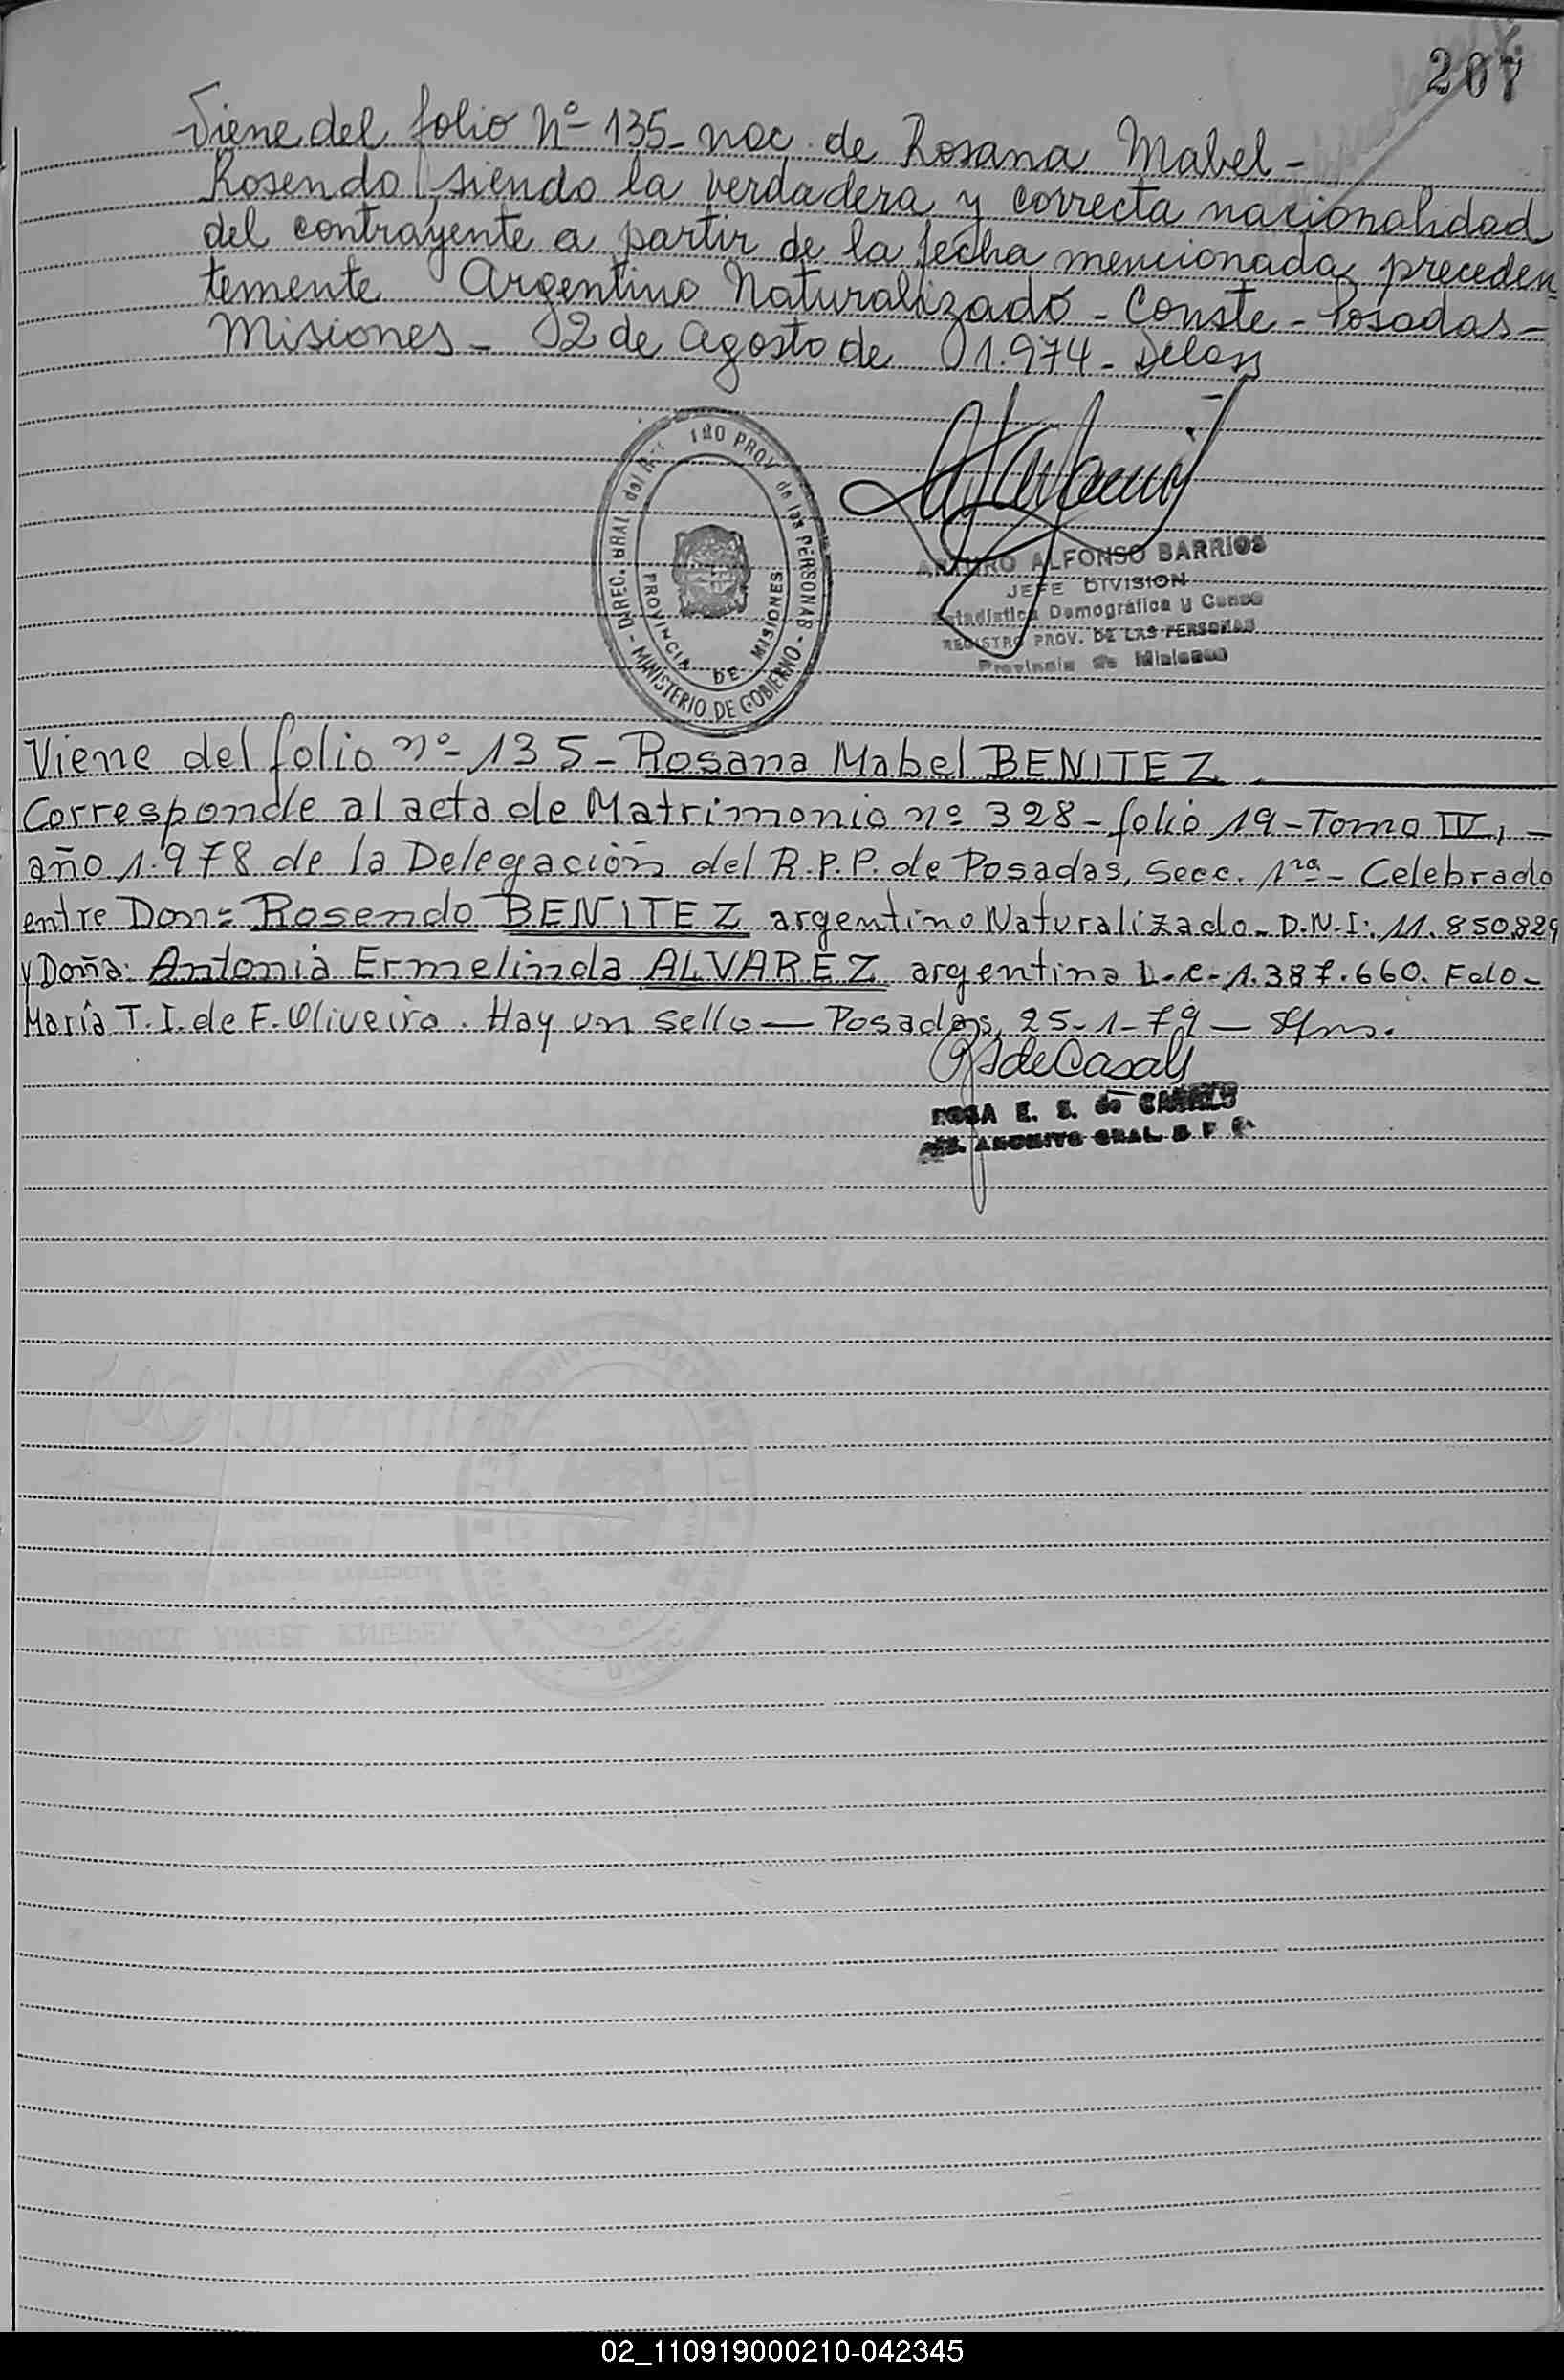 207
Viene del folio Nº 135- nac. de Rosana Mabel -
Rosendo, siendo la verdadera y correcta nacionalidad
del contrayente a partir de la fecha mencionada preceden
temente Argentino Naturalizado - Conste - Posadas -
Misiones - 02 de Agosto de 1.974 -
DIREC. GRAL. del PROV. de las PERSONAS - MINISTERIO DE GOBIERNO -
PROVINCIA DE MISIONES
ARTURO ALFONSO BARRIOS
JEFE DIVISION
Estadistica Demográfica y Censo
REGISTRO PROV. DE LAS PERSONAS
Provincia de Misiones
Viene del folio nº- 135 - Rosana Mabel BENITEZ
Corresponde al acta de Matrimonio nº 328 - folio 19 - Tomo IV, -
año 1.978 de la Delegación del R.P.P. de Posadas, Secc. 1ra - Celebrado
entre Don: Rosendo BENITEZ argentino Naturalizado - D.N.I: 11.850.829
y Doña: Antonia Ermelinda ALVAREZ argentina L.C. 1.387.660. Fdo -
María T. I. de F. Oliveira. Hay un sello — Posadas, 25-1-79 —
RS de Casals
ROSA E. S. de CASALS
ARCHIVO GRAL.
02_110919000210-042345